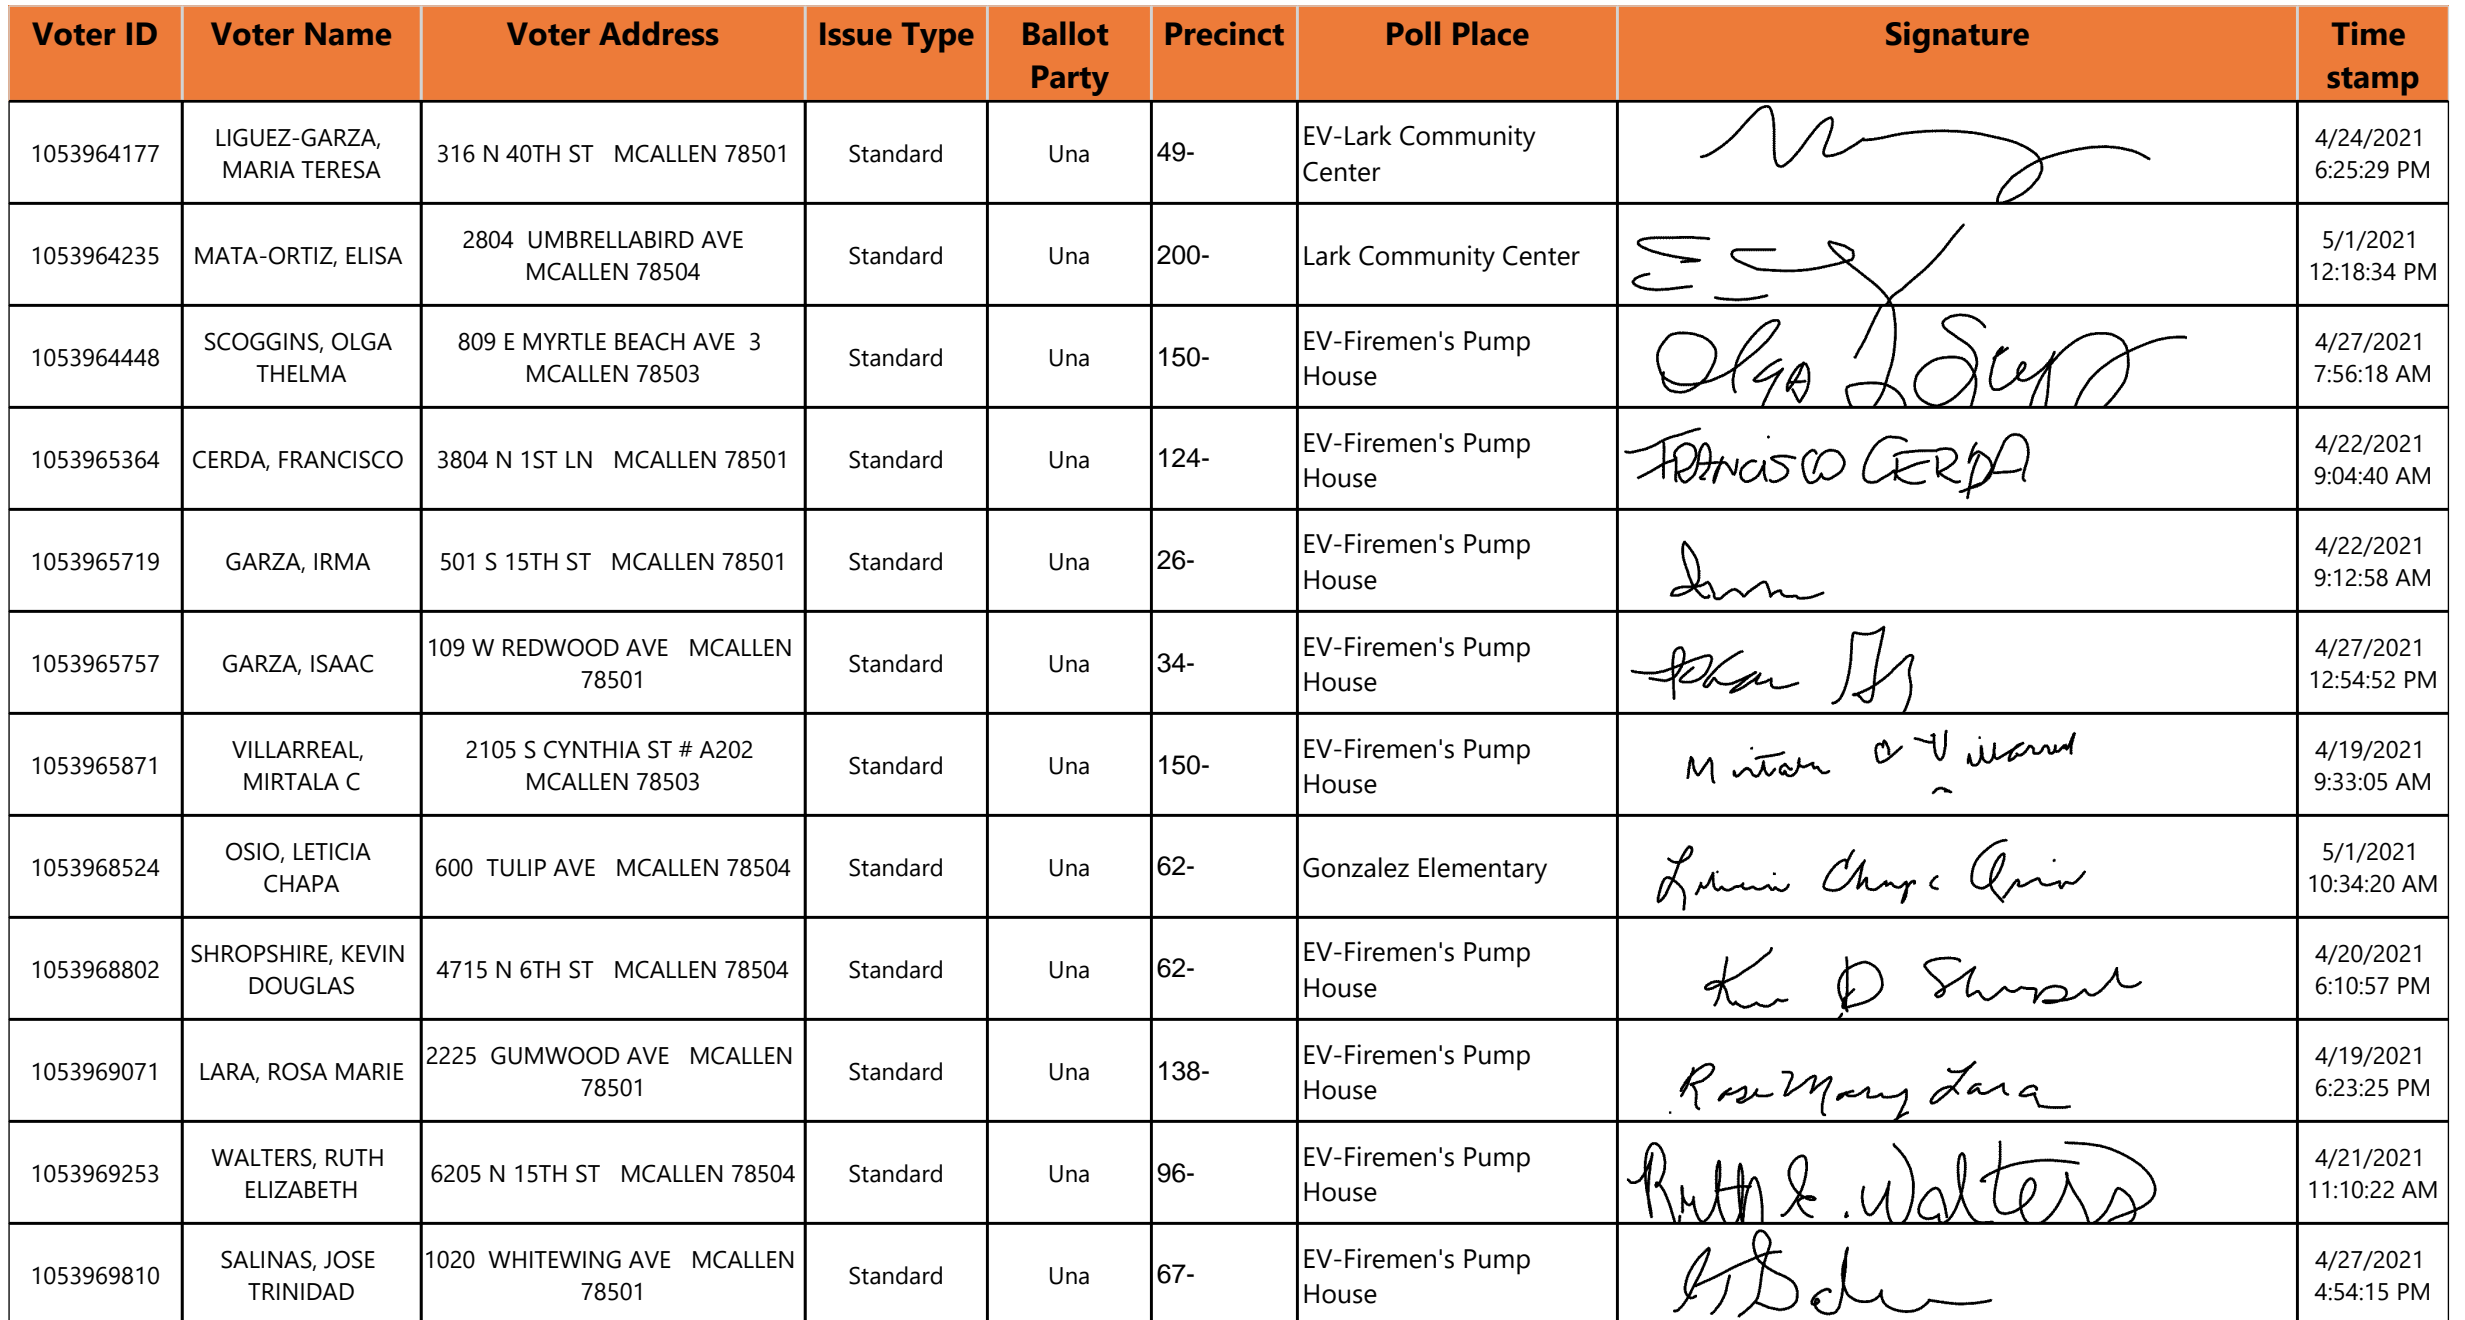 Voter ID Voter Name Voter Address Issue Type Ballot Party Precinct Poll Place Signature Time stamp
1053964177 LIGUEZ-GARZA, MARIA TERESA 316 N 40TH ST MCALLEN 78501 Standard Una 49- EV-Lark Community Center 4/24/2021 6:25:29 PM
1053964235 MATA-ORTIZ, ELISA 2804 UMBRELLABIRD AVE MCALLEN 78504 Standard Una 200- Lark Community Center 5/1/2021 12:18:34 PM
1053964448 SCOGGINS, OLGA THELMA 809 E MYRTLE BEACH AVE 3 MCALLEN 78503 Standard Una 150- EV-Firemen's Pump House Olga 4/27/2021 7:56:18 AM
1053965364 CERDA, FRANCISCO 3804 N 1ST LN MCALLEN 78501 Standard Una 124- EV-Firemen's Pump House FRANCISCO CERDA 4/22/2021 9:04:40 AM
1053965719 GARZA, IRMA 501 S 15TH ST MCALLEN 78501 Standard Una 26- EV-Firemen's Pump House 4/22/2021 9:12:58 AM
1053965757 GARZA, ISAAC 109 W REDWOOD AVE MCALLEN 78501 Standard Una 34- EV-Firemen's Pump House 4/27/2021 12:54:52 PM
1053965871 VILLARREAL, MIRTALA C 2105 S CYNTHIA ST # A202 MCALLEN 78503 Standard Una 150- EV-Firemen's Pump House 4/19/2021 9:33:05 AM
1053968524 OSIO, LETICIA CHAPA 600 TULIP AVE MCALLEN 78504 Standard Una 62- Gonzalez Elementary 5/1/2021 10:34:20 AM
1053968802 SHROPSHIRE, KEVIN DOUGLAS 4715 N 6TH ST MCALLEN 78504 Standard Una 62- EV-Firemen's Pump House 4/20/2021 6:10:57 PM
1053969071 LARA, ROSA MARIE 2225 GUMWOOD AVE MCALLEN 78501 Standard Una 138- EV-Firemen's Pump House Rose Mary Lara 4/19/2021 6:23:25 PM
1053969253 WALTERS, RUTH ELIZABETH 6205 N 15TH ST MCALLEN 78504 Standard Una 96- EV-Firemen's Pump House Ruth E. Walters 4/21/2021 11:10:22 AM
1053969810 SALINAS, JOSE TRINIDAD 1020 WHITEWING AVE MCALLEN 78501 Standard Una 67- EV-Firemen's Pump House 4/27/2021 4:54:15 PM